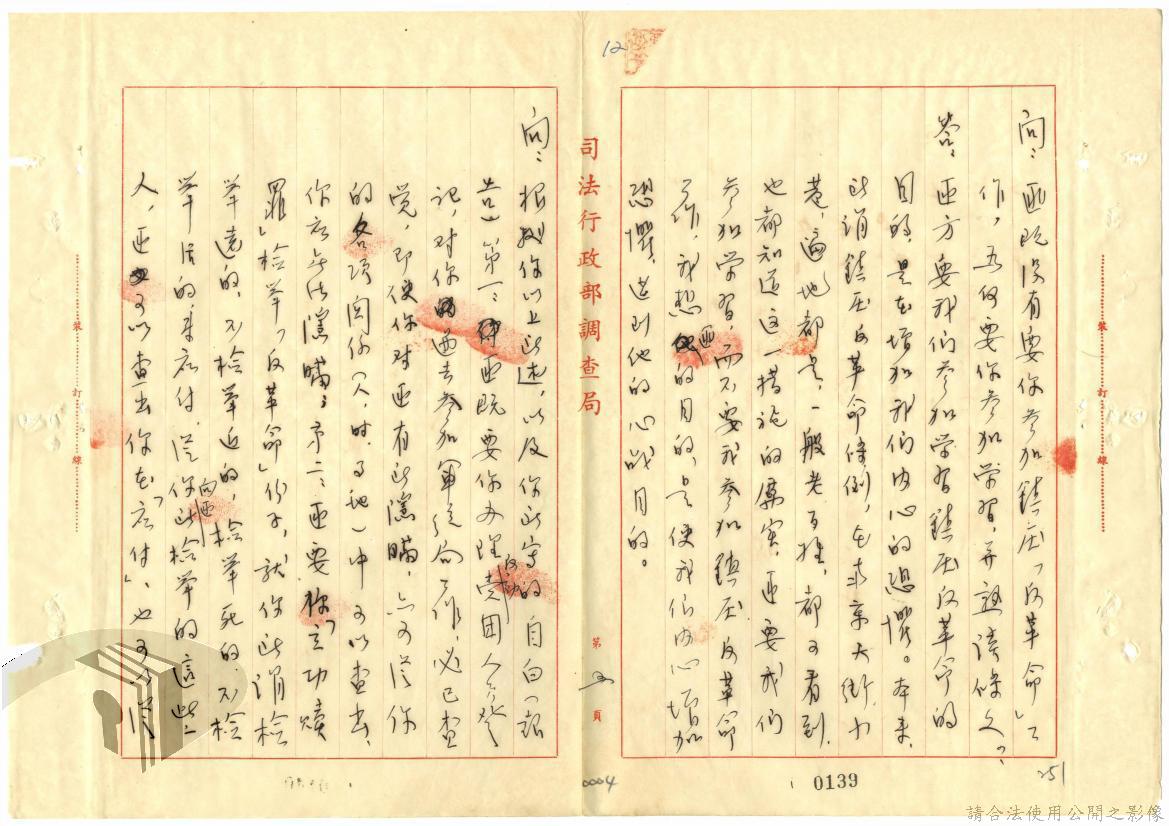 12
問：匪既沒有要你參加鎮压「反革命」工
作，為何要你參加学習，并熟讀條文？
答：匪方要我们參加学習鎮压反革命的
目的，是在增加我们内心的恐懼。本来，
所謂鎮压反革命條例，在南京大街小
巷，遍地都是，一般老百姓，都可看到，
也都知道這一措施的厲害，匪要我们
參加学習，而不要我參加鎮压反革命
工作，我想匪的目的，是使我们内心增加
恐懼，達到他的心战目的。
司法行政部調查局
第 頁
問：根據你以上所述，以及你所寫的自白（報
告）第一：匪既要你办理反動党团人員登
記，对你過去參加軍統局工作，必已查
覺，即使你对匪有所隱瞞，亦可從你
的各項関係（人、時、事、地）中可以查出，
你応無法隱瞞；第二：匪要你「立功贖
罪」檢举「反革命」份子，就你所謂檢
举遠的，不檢举近的，檢举死的，不檢
举活的来応付，從你向匪所檢举的這些
人，匪可以查出你在「応付」，也可以從
裝 訂 線
裝 訂 線
0004
0139
251
請合法使用公開之影像